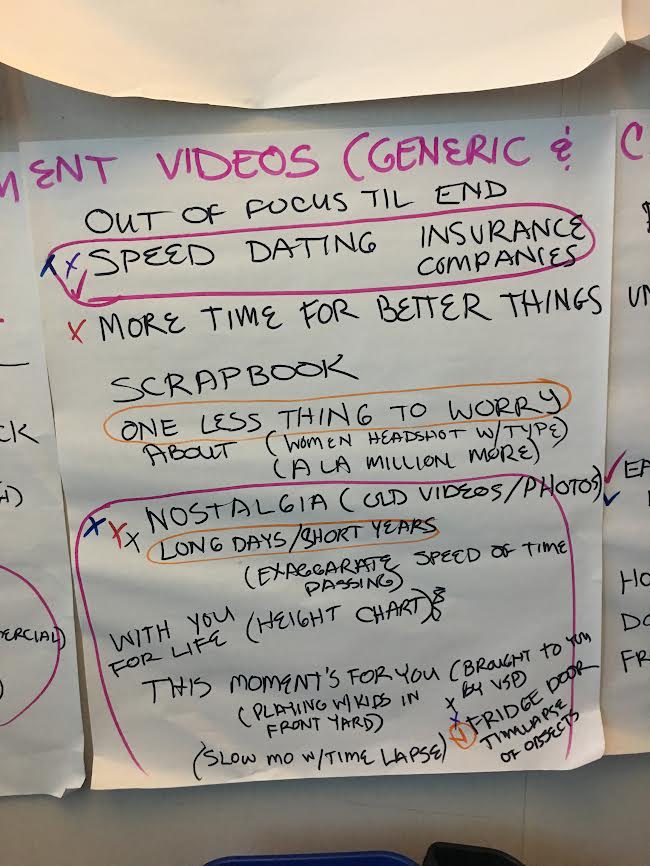 MENT VIDEOS (GENERIC & C
OUT OF FOCUS TIL END
X X SPEED DATING INSURANCE
COMPANIES
X MORE TIME FOR BETTER THINGS
SCRAPBOOK
ONE LESS THING TO WORRY
ABOUT (WOMEN HEADSHOT W/TYPE)
(A LA MILLION MORE)
X X X NOSTALGIA (OLD VIDEOS/PHOTOS)
LONG DAYS/SHORT YEARS
(EXAGGARATE SPEED OF TIME
PASSING)
WITH YOU
FOR LIFE (HEIGHT CHART)
THIS MOMENT'S FOR YOU (BROUGHT TO YOU
BY VSP)
(PLAYING W/KIDS IN
FRONT YARD)
X
X FRIDGE DOOR
TIMELAPSE
OF OBJECTS
(SLOW MO W/TIME LAPSE)
CK
ERCIAL)
UN
EA
HO
DO
FR